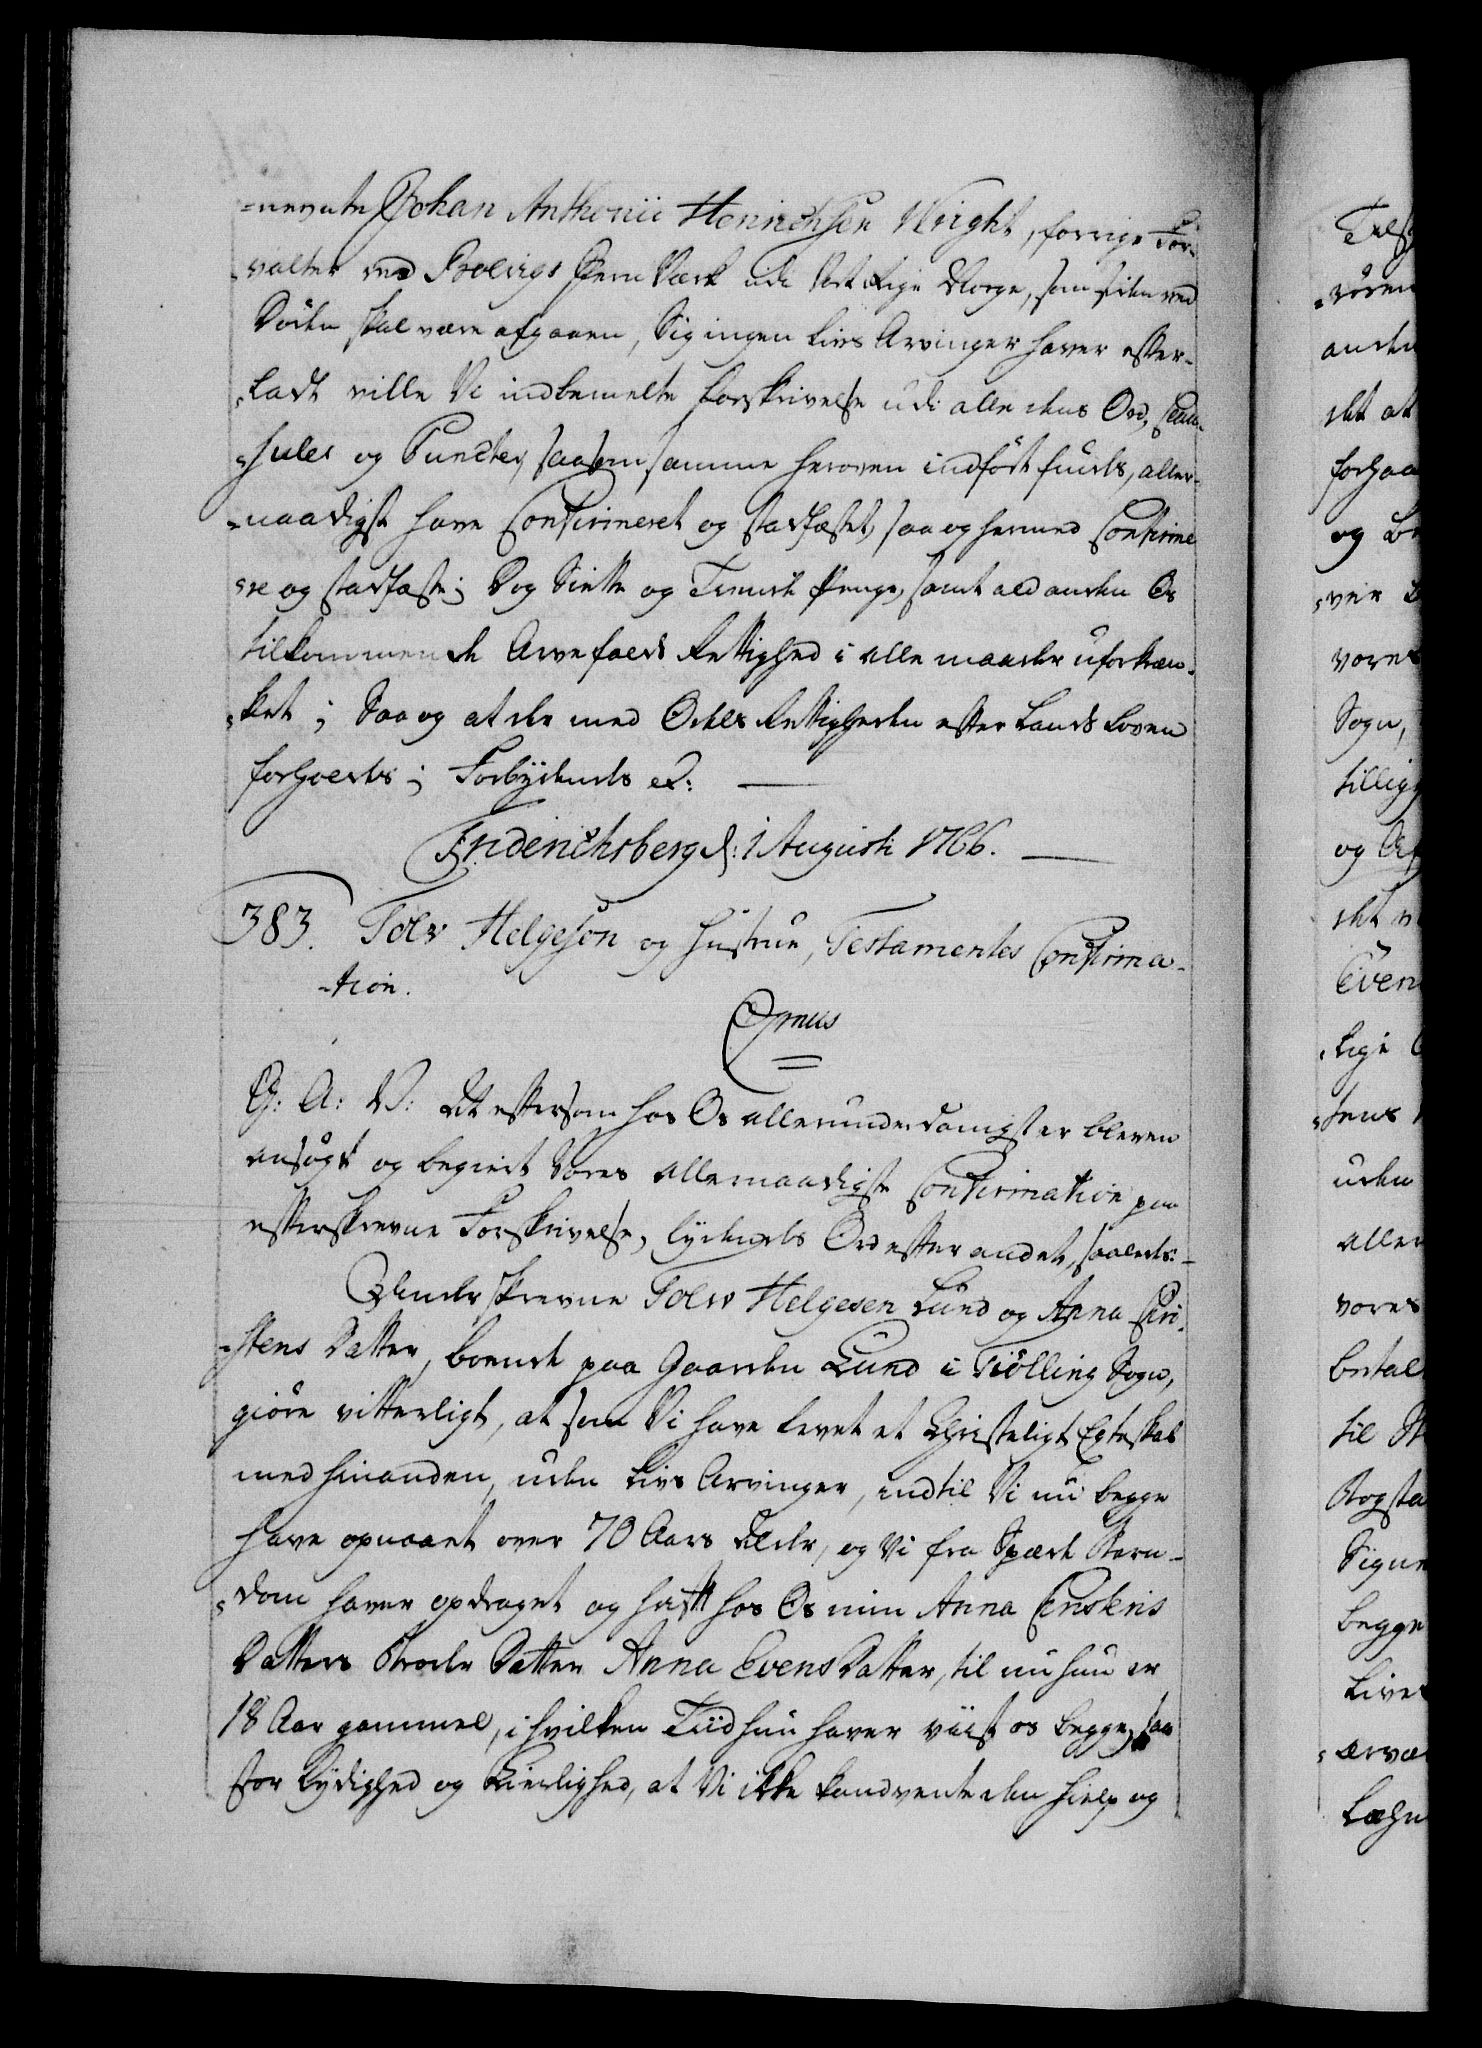 -nevnte Johan Anthonii Henrichsen Wright, forrige For-
valter ved Bolvigs Jern Værk udi Vort Rige Norge, som siden ved
Døden skal være afgaaen, Sig ingen Livs Arvinger haver efter-
-ladt ville Vi indbemelte Forskrivelse udi alle dens Ord, Clau-
-suler og Puncter, saasom samme heroven indført findes, aller-
-naadigst have Confirmeret og stadfæstet, saa og hermed Confirme
-re og stadfæste; Dog Siette og Tiende Penge, samt ald anden Os
tilkommende Arvefalds Rettighed i alle maader uforkræn-
-ket; Saa og at der med Odels Rettigheden efter Lands Loven
forholdes; Forbydendes &:
Friderichsberg d: 1 Augusti 1766.
383. Tolv Helgesøn og Hustrue, Testamentes Confirma-
-tion.
Gratis
C: A: V: At eftersom hos Os allerunderdanigst er bleven
ansøgt og begiert Vores allernaadigste Confirmation paa
efterskrevne Forskrivelse, lydendes Ord efter andet, saaledes:-
Underskrevne Tolv Helgesen Lund og Anna Chri-
-stens Datter, boende paa Gaarden Lund i Tiølling Sogn,
giøre vitterligt, at som Vi have levet et Christeligt Egteskab
med hinanden, uden Livs Arvinger, indtil Vi nu begge
have opnaaet over 70 Aars Alder, og Vi fra Spæde Barn-
-dom haver opdraget og haft hos Os min Anna Christens
Datters Broder Datter Anna Evens Datter, til nu hun er
18 Aar gammel, i hvilken Tiid hun haver viist os begge, saa
stor Lydighed og Kierlighed, at Vi ikke kand vente den Hielp og